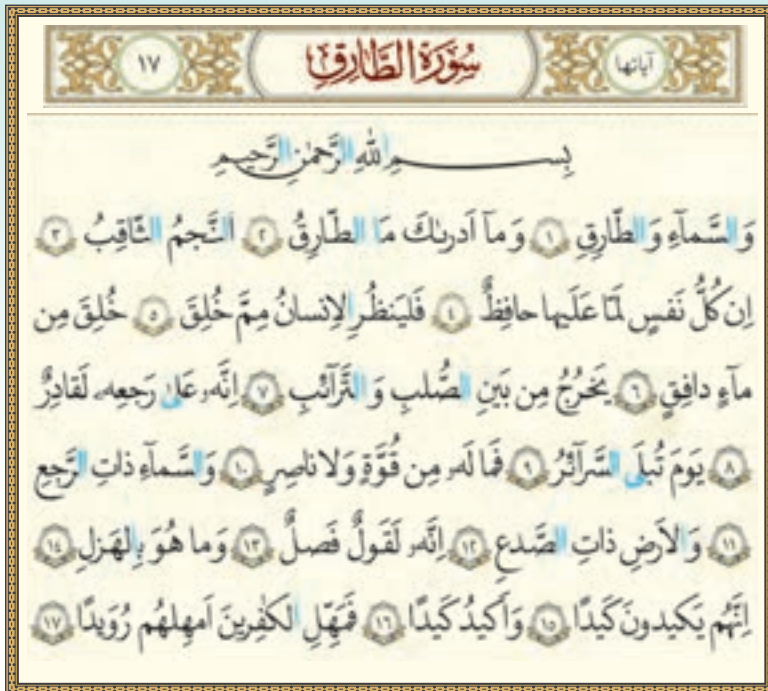 آیاتها سُورَة الطَّارِق ١٧
بِسمِ اللهِ الرَّحمٰنِ الرَّحیمِ
وَالسَّمآءِ وَالطّارِقِ ١ وَ مآ اَدرىٰكَ مَا الطّارِقُ ٢ اَلنَّجمُ الثّاقِبُ ٣
اِن كُلُّ نَفسٍ لَمّا عَلَیها حافِظٌ ٤ فَلیَنظُرِ الاِنسانُ مِمَّ خُلِقَ ٥ خُلِقَ مِن
مآءٍ دافِقٍ ٦ یَخرُجُ مِن بَینِ الصُّلبِ وَ التَّرآئِبِ ٧ اِنَّه‍ُ عَلىٰ رَجعِه‍ِ لَقادِرٌ
٨ یَومَ تُبلَى السَّرآئِرُ ٩ فَما لَه‍ُ مِن قُوَّةٍ وَلا ناصِرٍ ١٠ وَالسَّمآءِ ذاتِ الرَّجعِ
١١ وَ الاَرضِ ذاتِ الصَّدعِ ١٢ اِنَّه‍ُ لَقَولٌ فَصلٌ ١٣ وَ ما هُوَ بِالهَزلِ ١٤
اِنَّهُم یَكیدونَ كَیدًا ١٥ وَ اَكیدُ كَیدًا ١٦ فَمَهِّلِ الكٰفِرینَ اَمهِلهُم رُوَیدًا ١٧